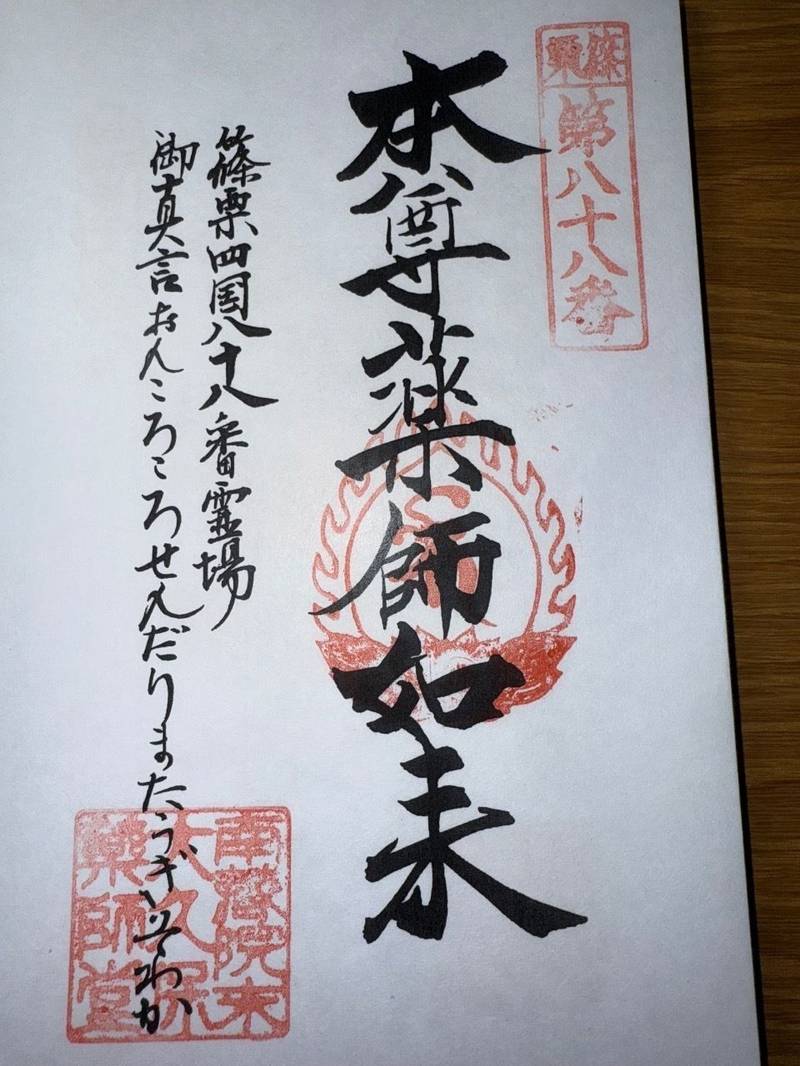 篠栗
第八十八番
本尊薬師如来
篠栗四国八十八番霊場
御真言おんころころせんだりまたうぎそわか
南蔵院末
大久保
藥師堂